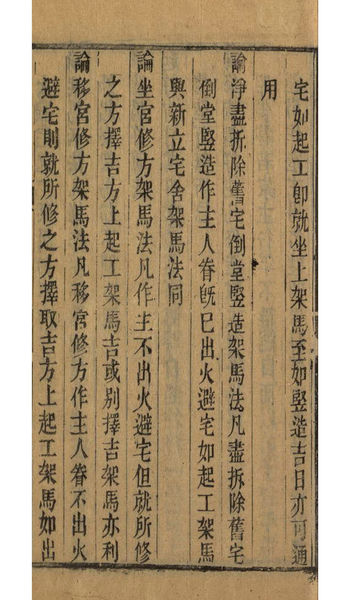 宅如起工卽就坐上架馬至如竪造吉日亦可通
用
論淨盡拆除舊宅倒堂竪造架馬法凡盡拆除舊宅
倒堂竪造作主人眷旣已出火避宅如起工架馬
與新立宅舍架馬法同
論坐宮修方架馬法凡作主不出火避宅但就所修
之方擇吉方上起工架馬吉或別擇吉架馬亦利
論移宮修方架馬法凡移宮修方作主人眷不出火
避宅則就所修之方擇取吉方上起工架馬如出